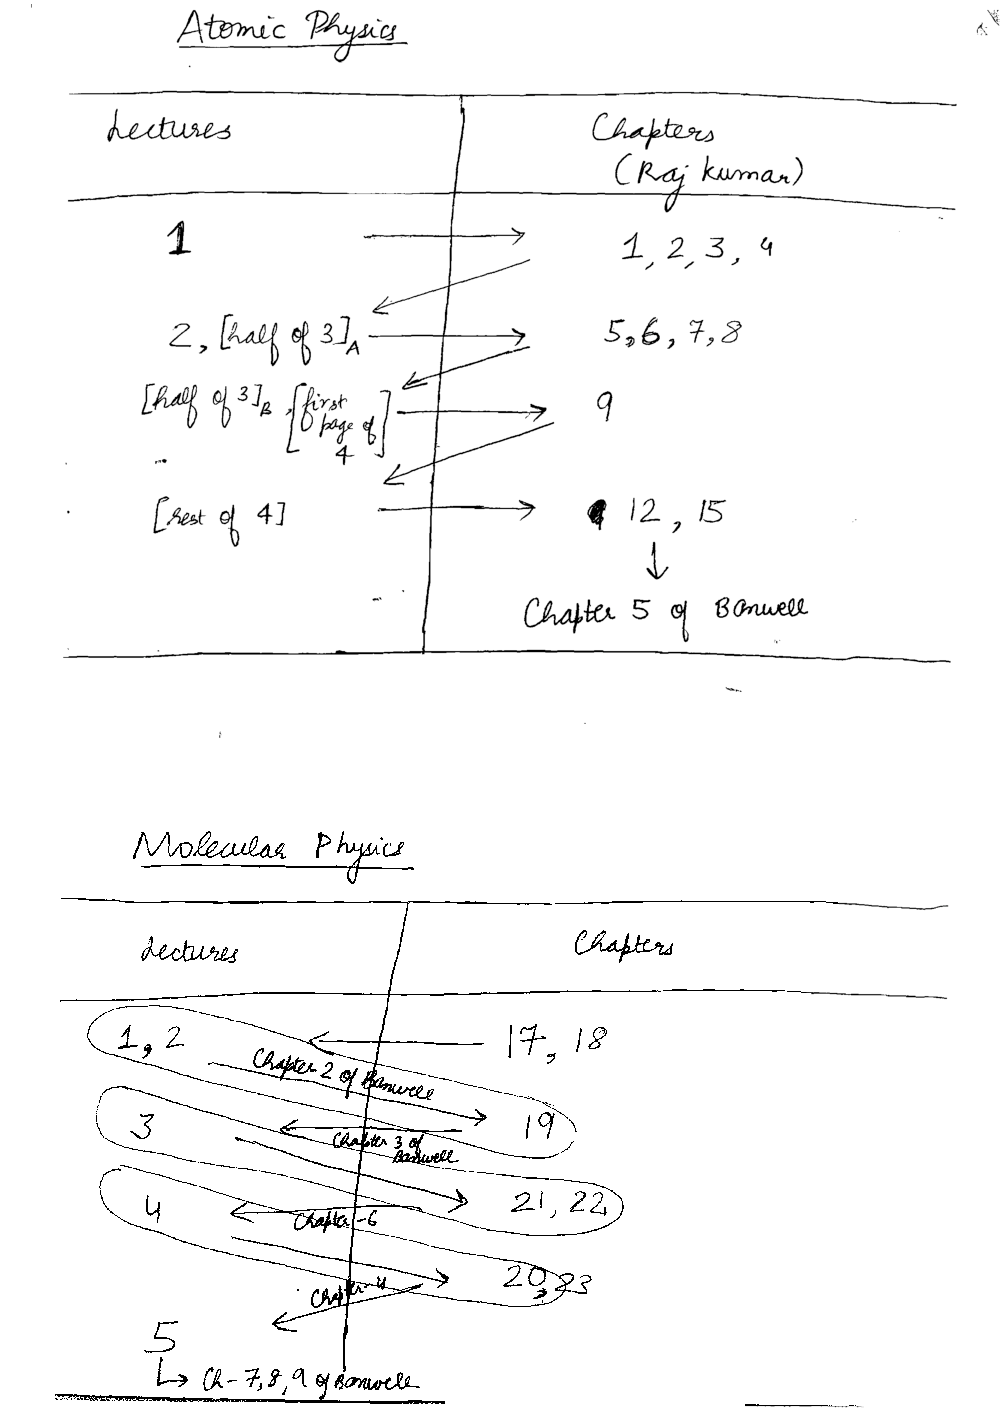 Atomic Physics
Lectures
Chapters
(Raj kumar)
1
1, 2, 3, 4
2, [half of 3]A
5, 6, 7, 8
[half of 3]B, [first page of 4]
9
[rest of 4]
12, 15
Chapter 5 of Banwell
Molecular Physics
Lectures
Chapters
1, 2
17, 18
Chapter 2 of Banwell
19
3
Chapter 3 of
Banwell
21, 22
4
Chapter-6
20, 23
Chapter-4
5
Ch-7, 8, 9 of Banwell